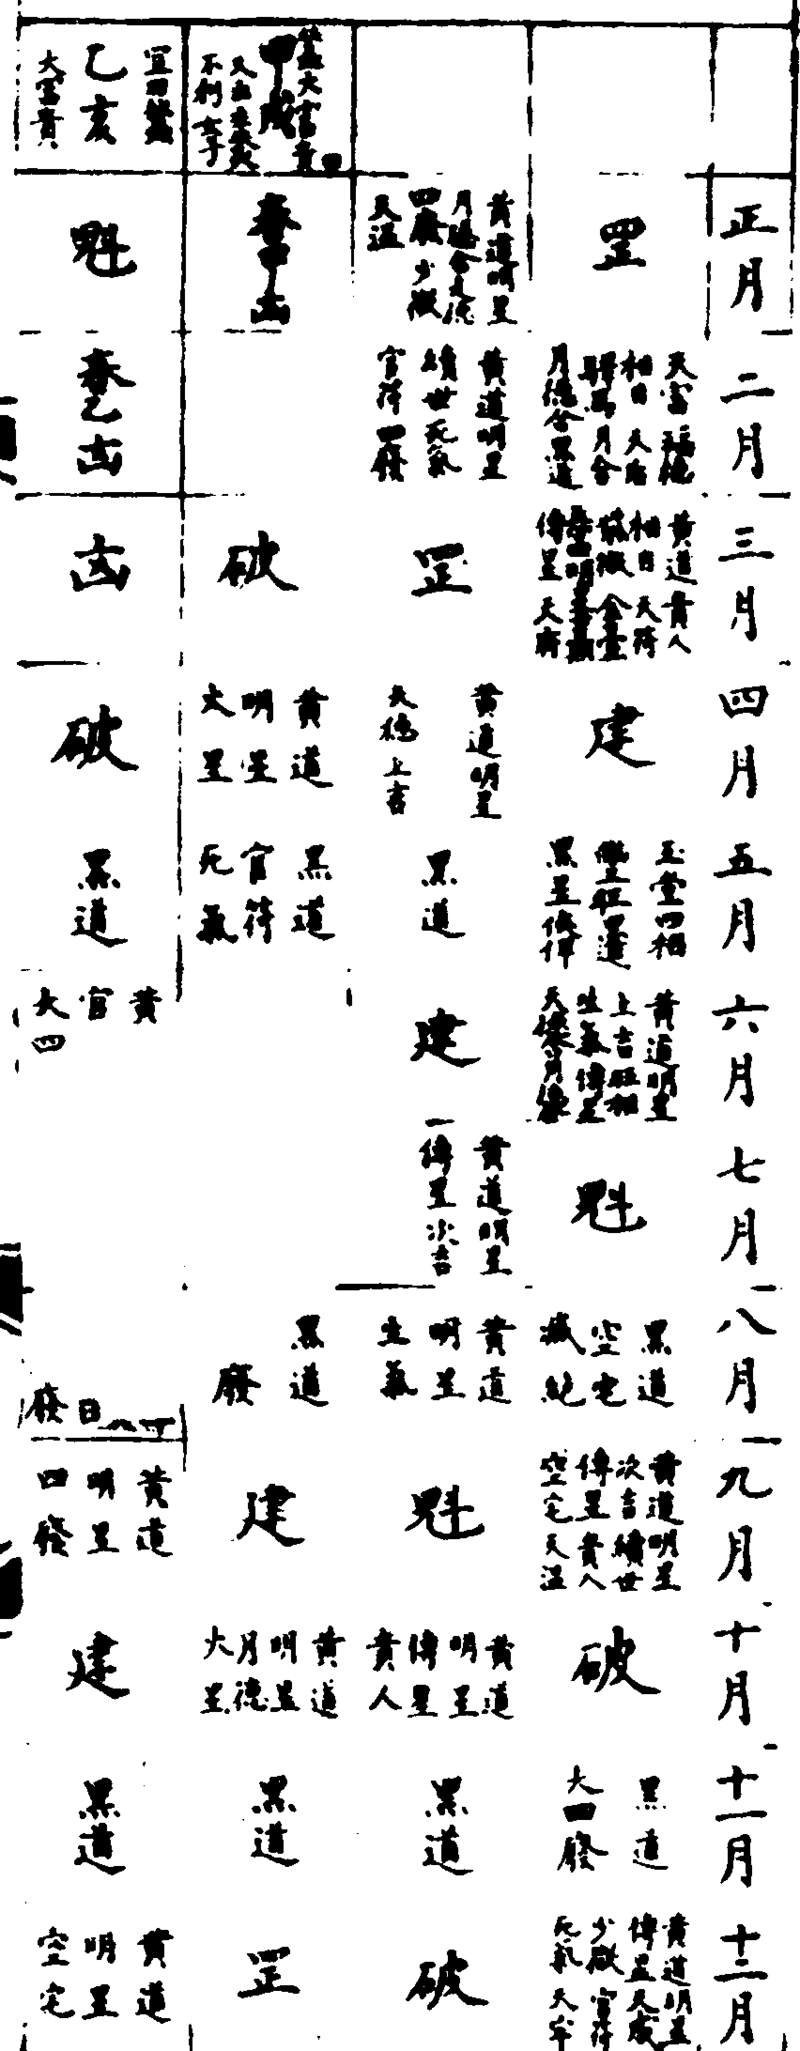 正月
二月
三月
四月
五月
六月
七月
八月
九月
十月
十一月
十二月
罡
天富 福德
相日 天府
驛馬 月合
月德合 黑道
黃道 貴人
相日 天符
傳星 天府
建
玉堂 四相
黑星
黃道明星
上吉旺相
生氣傳星
魁
黑道
空宅
滅絕
黃道明星
次吉續世
傳星貴人
空宅天溫
破
黑道
大四廢
黃道明星
傳星天成
少微官符
死氣天牢
黃道明星
四廢少微
天溫
黃道明星
續世死氣
官符四廢
罡
黃道明星
天德上吉
黑道
建
黃道明星
傳星次吉
黃道
明星
生氣
魁
黃道
明星
傳星
貴人
黑道
破
甲戌
不利女子
春甲凶
破
黃道
明星
大星
黑道
官符
死氣
黑道
廢
建
黃道
明星
月德
大星
黑道
罡
宜田蠶
乙亥
大富貴
魁
春乙凶
凶
破
黑道
黃
官
天四
日
廢
黃道
明星
四廢
建
黑道
黃道
明星
空宅